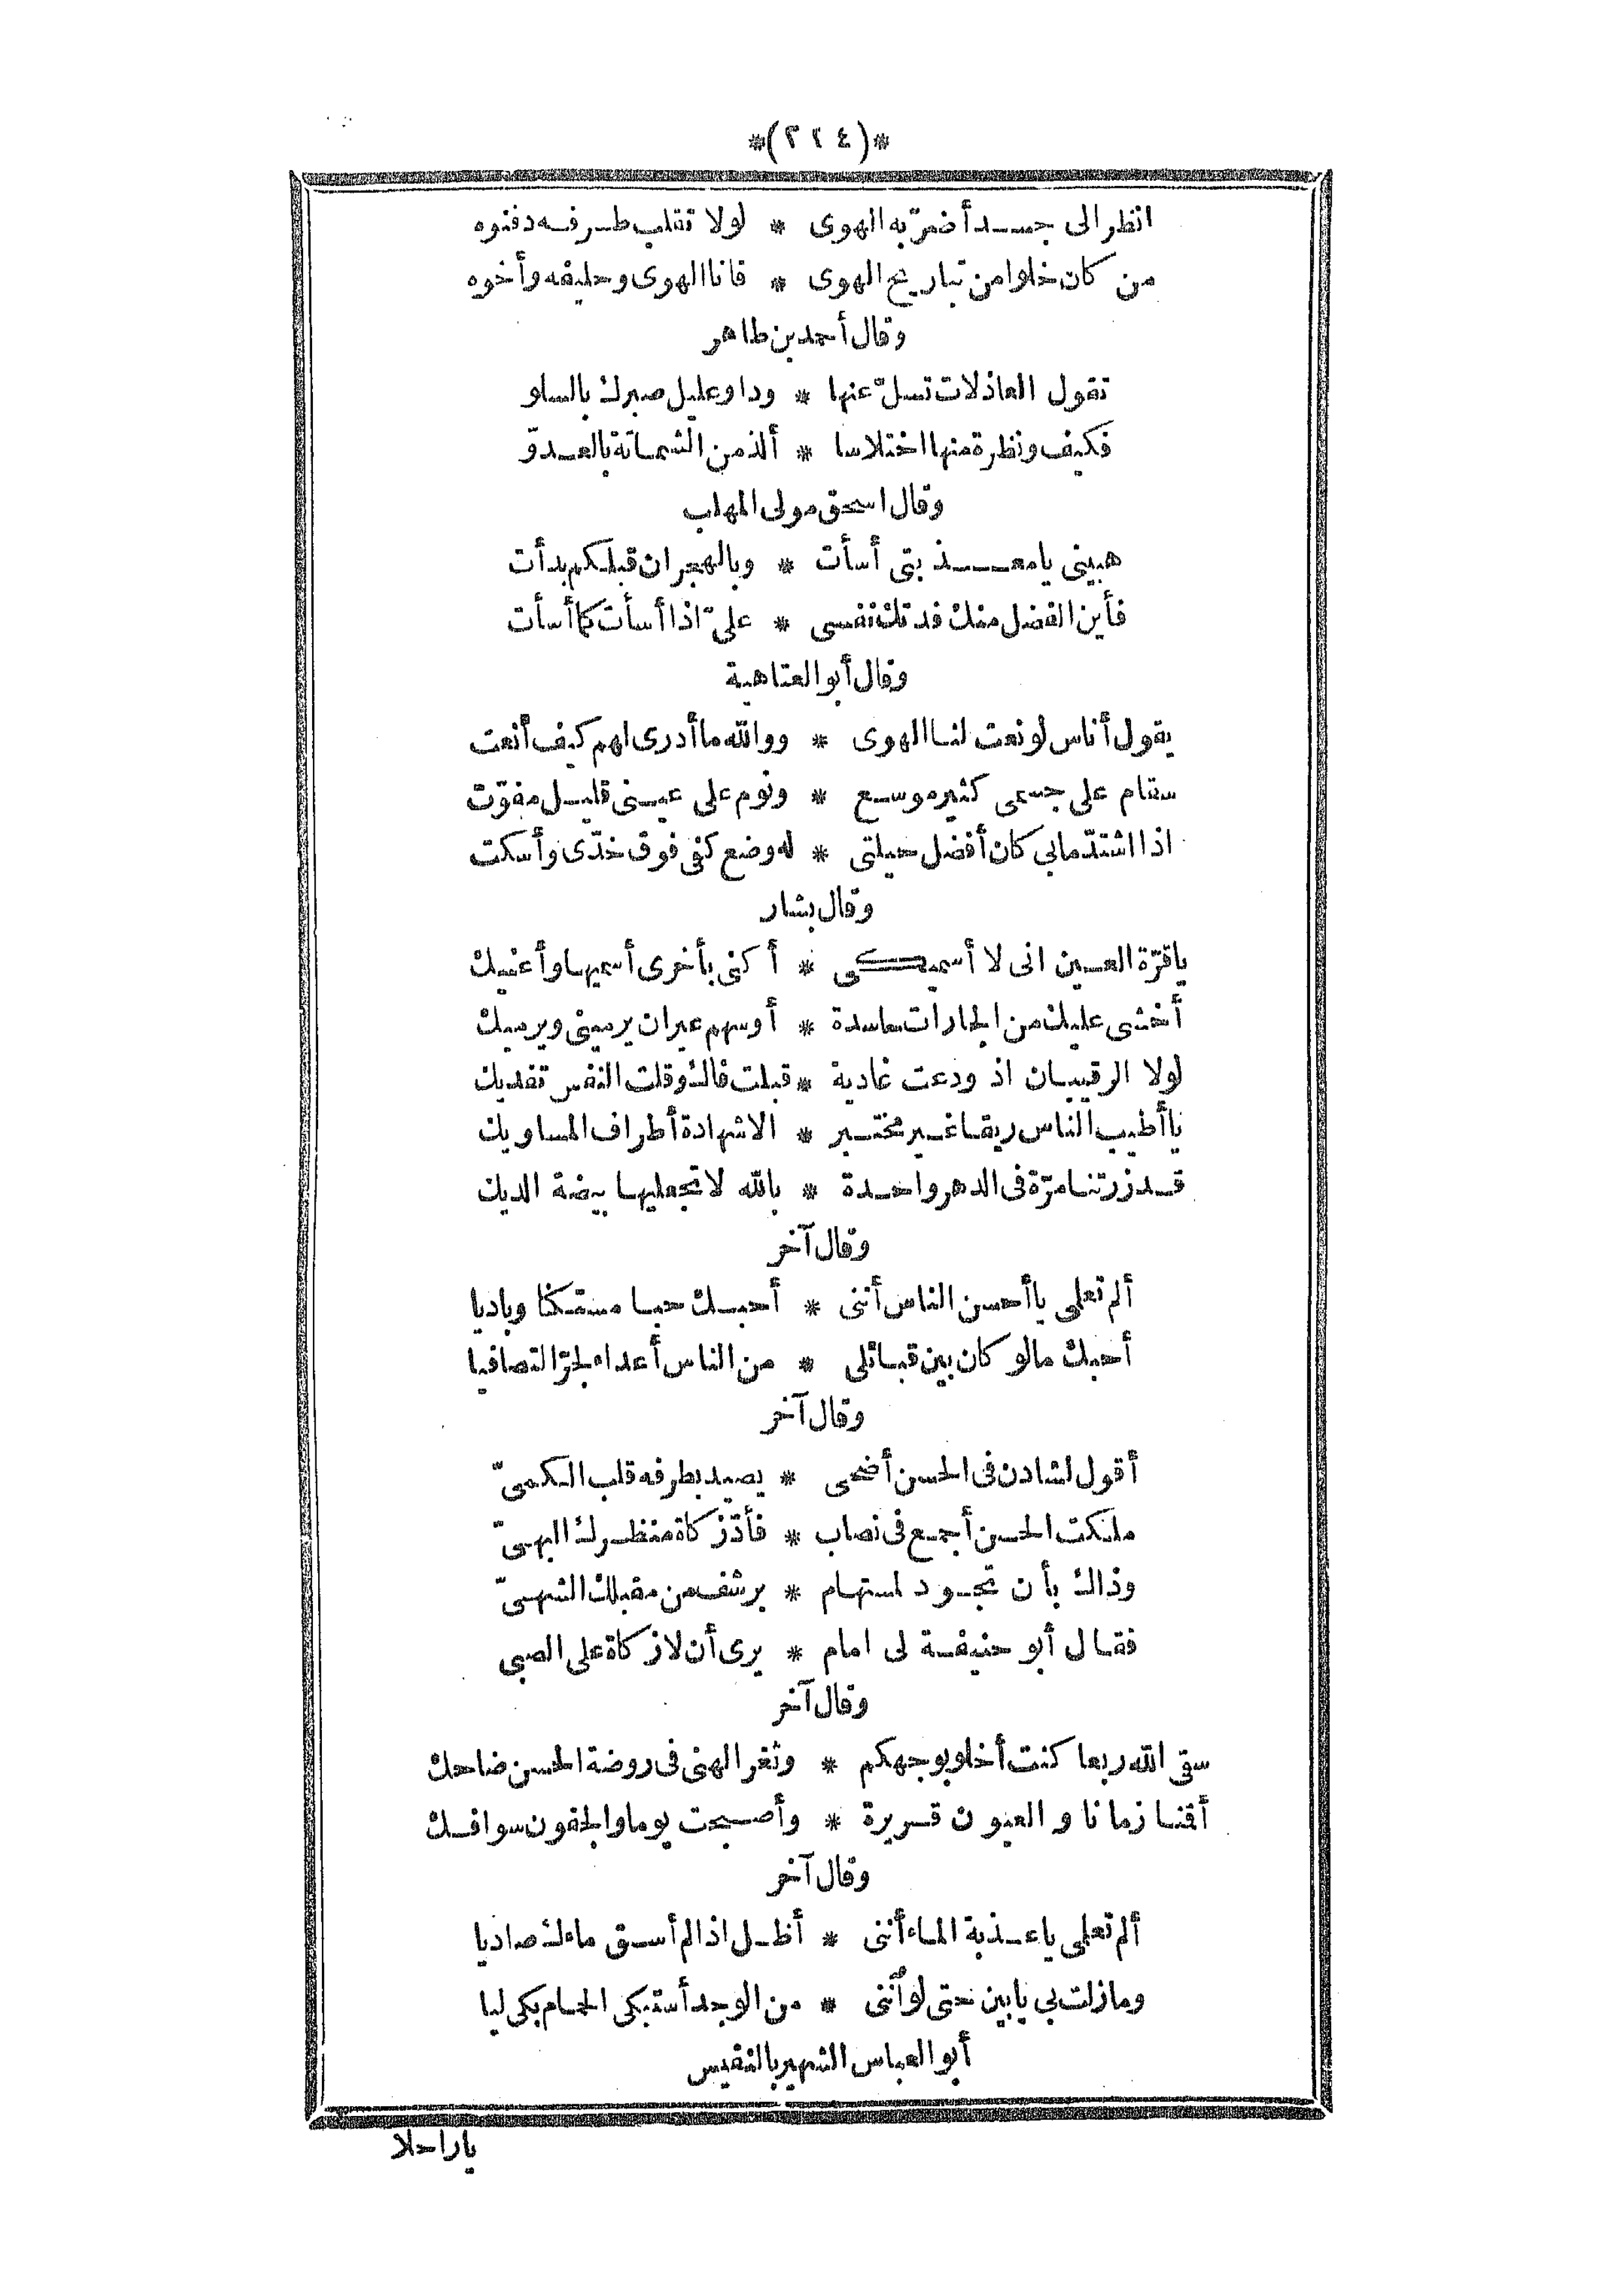 *(٢٢٤)*
انظر الى جسد أضرّ به الهوى * لولا تقلب طرفه دفنوه
من كان خلوا من تباريح الهوى * فانا الهوى وحليفه وأخوه
وقال أحمد بن طاهر
تقول العاذلات تسلّ عنها * وداو عليل صبرك بالسلو
فكيف ونظرة منها اختلاسا * ألذ من الشماتة بالعدوّ
وقال اسحق مولى المهلب
هبينى يا معذبتى أسأت * وبالهجران قبلكم بدأت
فأين الفضل منك فدتك نفسى * علىّ اذا أسأت كما أسأت
وقال أبو العتاهية
يقول أناس لو نعت لنا الهوى * ووالله ما أدرى لهم كيف أنعت
سقام على جسمى كثير موسع * ونوم على عينى قليل مفوّت
اذا اشتدّ مابى كان أفضل حيلتى * له وضع كفى فوق خدّى وأسكت
وقال بشار
ياقرّة العين انى لا أسميكى * أكنى بأخرى أسميها وأعنيك
أخشى عليك من الجارات حاسدة * أوسهم غيران يرمينى ويرميك
لولا الرقيبان اذ ودعت غادية * قبلت فاك وقلت النفس تفديك
يا أطيب الناس ريقا غير مختبر * الا شهادة أطراف المساويك
قد زرتنا مرّة فى الدهر واحدة * بالله لا تجعليها بيضة الديك
وقال آخر
ألم تعلمى يا أحسن الناس أننى * أحبك حبا مستكنا وباديا
أحبك مالو كان بين قبائلى * من الناس أعداء لجرّ التصافيا
وقال آخر
أقول لشادن فى الحسن أضحى * يصيد بطرفه قلب الكمىّ
ملكت الحسن أجمع فى نصاب * فأدّ زكاة منظرك البهىّ
وذاك بأن تجود لمستهام * برشف من مقبلك الشهىّ
فقال أبو حنيفة لى امام * يرى أن لا زكاة على الصبى
وقال آخر
سقى الله ربعا كنت أخلو بوجهكم * وثغر الهنى فى روضة الحسن ضاحك
أقنا زمانا والعيون قريرة * وأصبحت يوما والجفون سوافك
وقال آخر
ألم تعلمى يا عذبة الماء أننى * أظل اذا لم أسق ماءك صاديا
ومازلت بى يا بين حتى لو أننى * من الوجد أستبكى الحمام بكى ليا
أبو العباس الشهير بالنفيس
يا راحلا